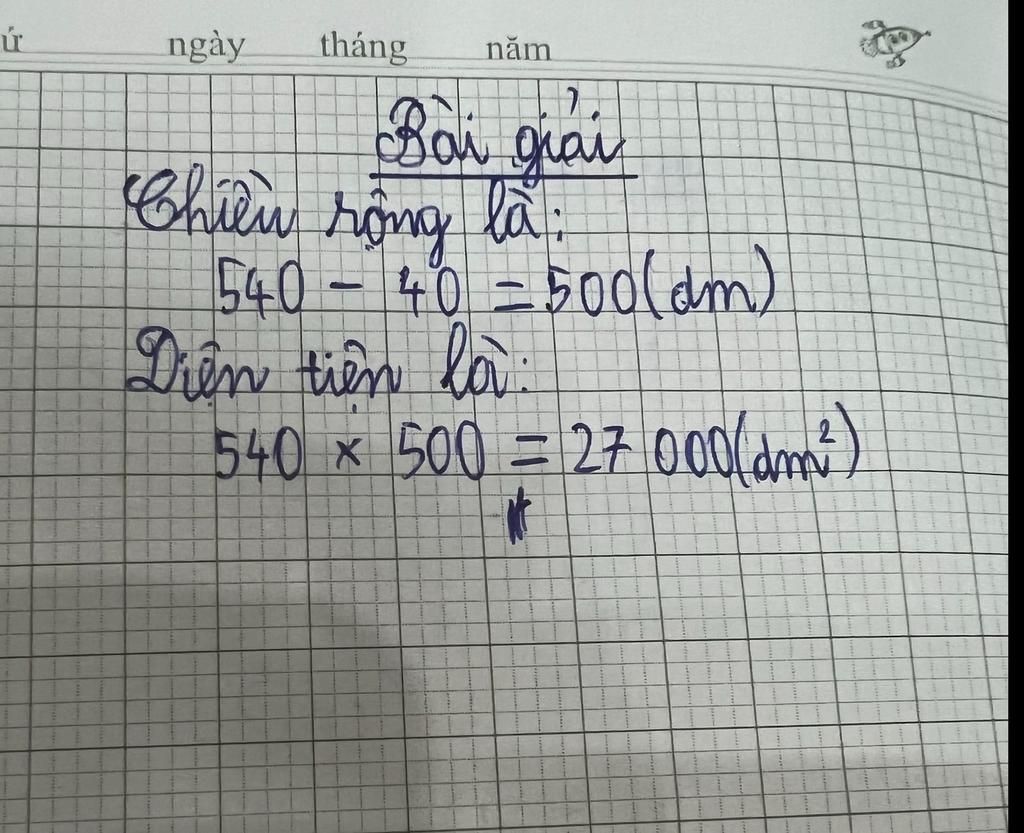 ứ ngày tháng năm
Bài giải
Chiều rộng là:
540 - 40 = 500(dm)
Diện tiện là:
540 x 500 = 27 000(dm²)